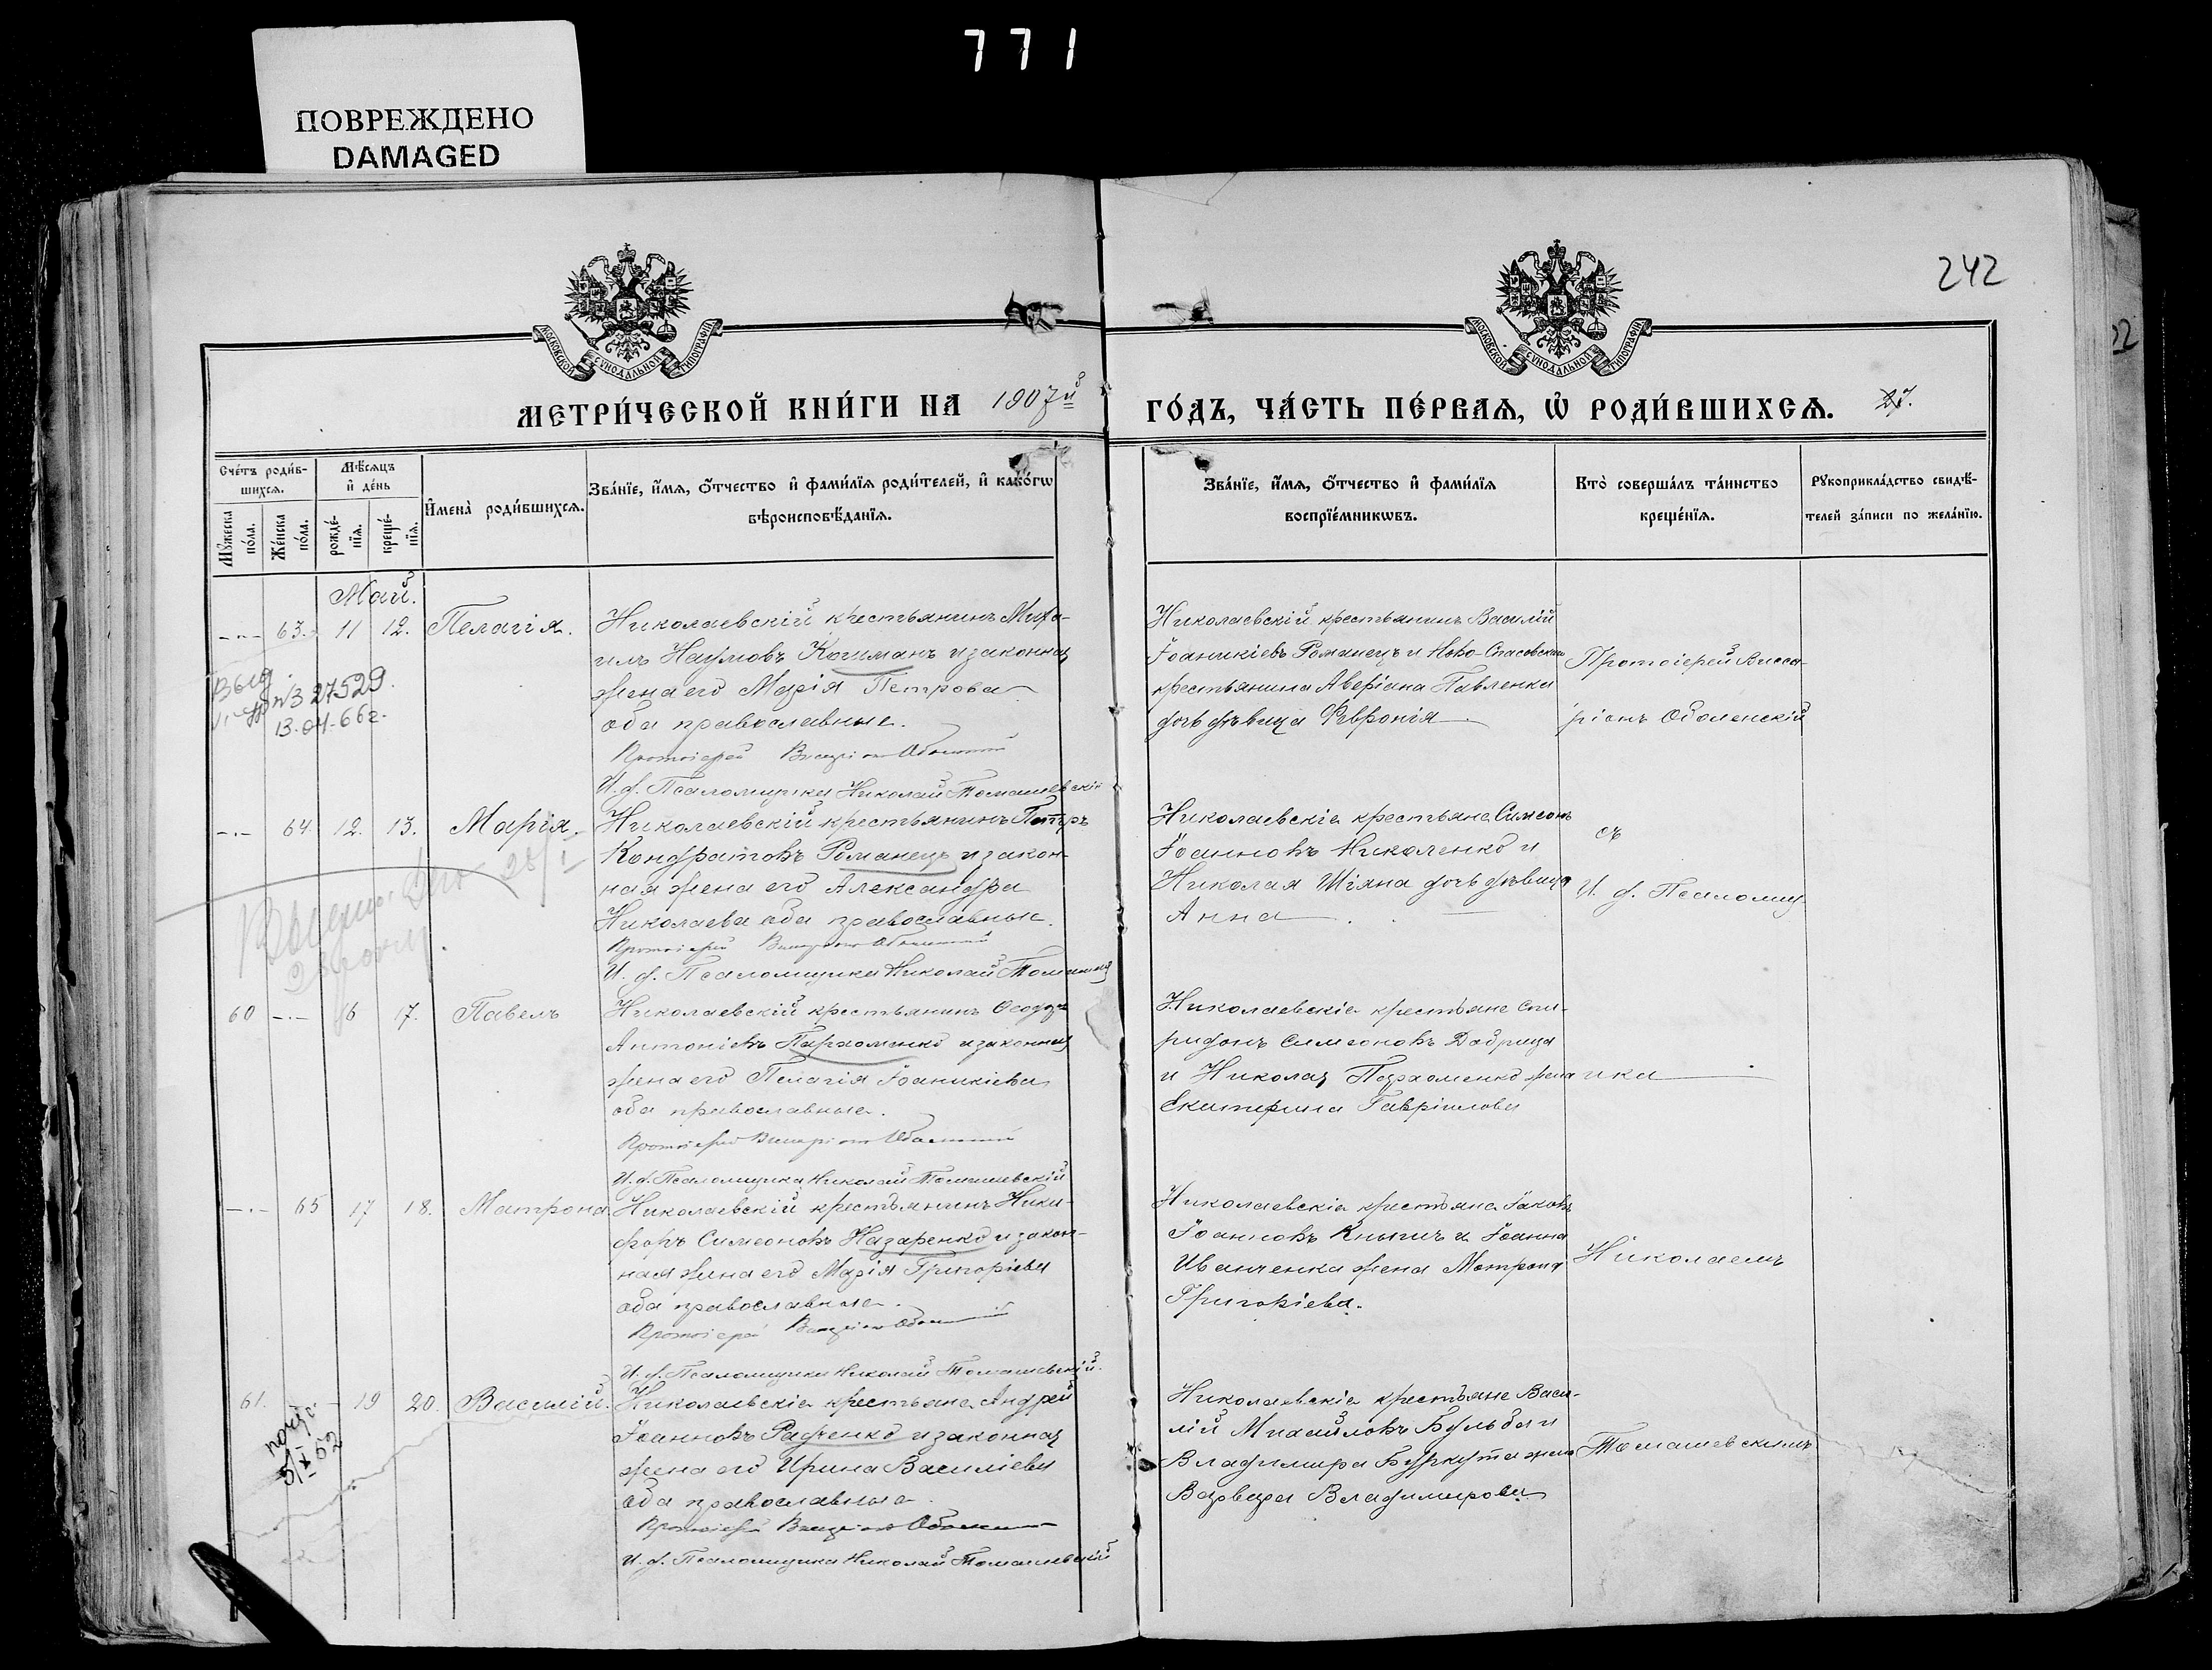 771
ПОВРЕЖДЕНО
DAMAGED
242
22
МОСКОВСКОЙ СѴНОДАЛЬНОЙ ТИПОГРАФІИ
МОСКОВСКОЙ СѴНОДАЛЬНОЙ ТИПОГРАФІИ
МЕТРИ́ЧЕСКОЙ КНИ́ГИ НА 1907й ГО́ДЪ, ЧА́СТЬ ПЕ́РВАЯ, Ѡ РОДИ́ВШИХСЯ. 27.
Сче́тъ роди́в-
шихся.
Мѣ́сяцъ
и де́нь
Му́жеска
по́ла.
Же́нска
по́ла.
рожде́-
нїя.
креще́-
нїя.
Имена̀ роди́вшихся.
Зва́нїе, и́мя, о́тчество и фами́лїя роди́телей, и како́гѡ
вѣроисповѣ́данїя.
Зва́нїе, и́мя, о́тчество и фами́лїя
воспрїе́мникѡвъ.
Кто̀ соверша́лъ та́инство
креще́нїя.
Рукоприкла́дство свидѣ́-
телей за́писи по жела́нїю.
Май.
-"- 63. 11 12. Пелагія.
Николаевскій крестьянинъ Миха-
илъ Наумовъ Кошманъ и законная
жена его Марія Петрова
оба православные.
Протоіерей Виссаріонъ Оболенскій
И. д. Псаломщика Николай Томашевскій
Николаевскій крестьянинъ Василій
Іоаникіевъ Романецъ и Ново-Спасовскаго
крестьянина Аверіана Павленка
дочь дѣвица Феврония
Протоіерей Висса-
ріонъ Оболенскій
Выд.
27529
13.04-66г.
-"- 64 12. 13. Марія.
Николаевскій крестьянинъ Петръ
Кондратовъ Романецъ и закон-
ная жена его Александра
Николаева оба православные.
Протоіерей Виссаріонъ Оболенскій
И. д. Псаломщика Николай
Николаевскіе крестьяне Симеонъ
Іоанновъ Николенко и
Николая Шіяна дочь дѣвица
Анна
съ
И. д. Псаломщ
60 -"- 16 17. Павелъ
Николаевскій крестьянинъ
Антоніевъ Пархоменко и законная
жена его Пелагія Іоаникіева
оба православные.
Протоіерей Виссаріонъ Оболенскій
И. д. Псаломщика Николай Томашевскій
Николаевскіе крестьяне Спи-
ридонъ Симеоновъ Добрица
и Николая Пархоменко жена
Екатерина Гавріилова
ика
-"- 65 17 18. Матрона
Николаевскій крестьянинъ Ники-
форъ Симеоновъ Назаренко и закон-
ная жена его Марія Григоріева
оба православные.
Протоіерей Виссаріонъ Оболенскій
И. д. Псаломщика Николай Томашевскій.
Николаевскіе крестьяне Іаковъ
Іоанновъ Книшъ и Іоанна
Иванченка жена Матрона
Григоріева.
Николаемъ
61. - 19 20. Василій.
Николаевскіе крестьяне Андрей
Іоанновъ Радченко и законная
жена его Ирина Василіева
оба православные.
Протоіерей Виссаріонъ Оболенскій
И. д. Псаломщика Николай Томашевскій
Николаевскіе крестьяне Васи-
лій Михайловъ Бульба и
Владимира Буркута жена
Варвара Владимирова
Томашевскимъ